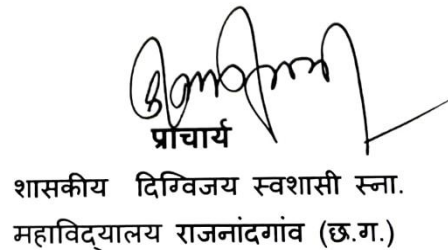 प्राचार्य
शासकीय दिग्विजय स्वशासी स्ना.
महाविद्यालय राजनांदगांव (छ.ग.)